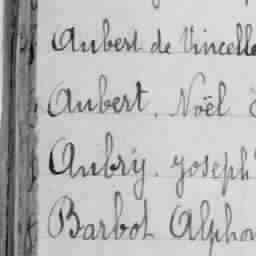 Aubert de Vincelle
Aubert. Noël
Aubry. Joseph
Barbot Alphon